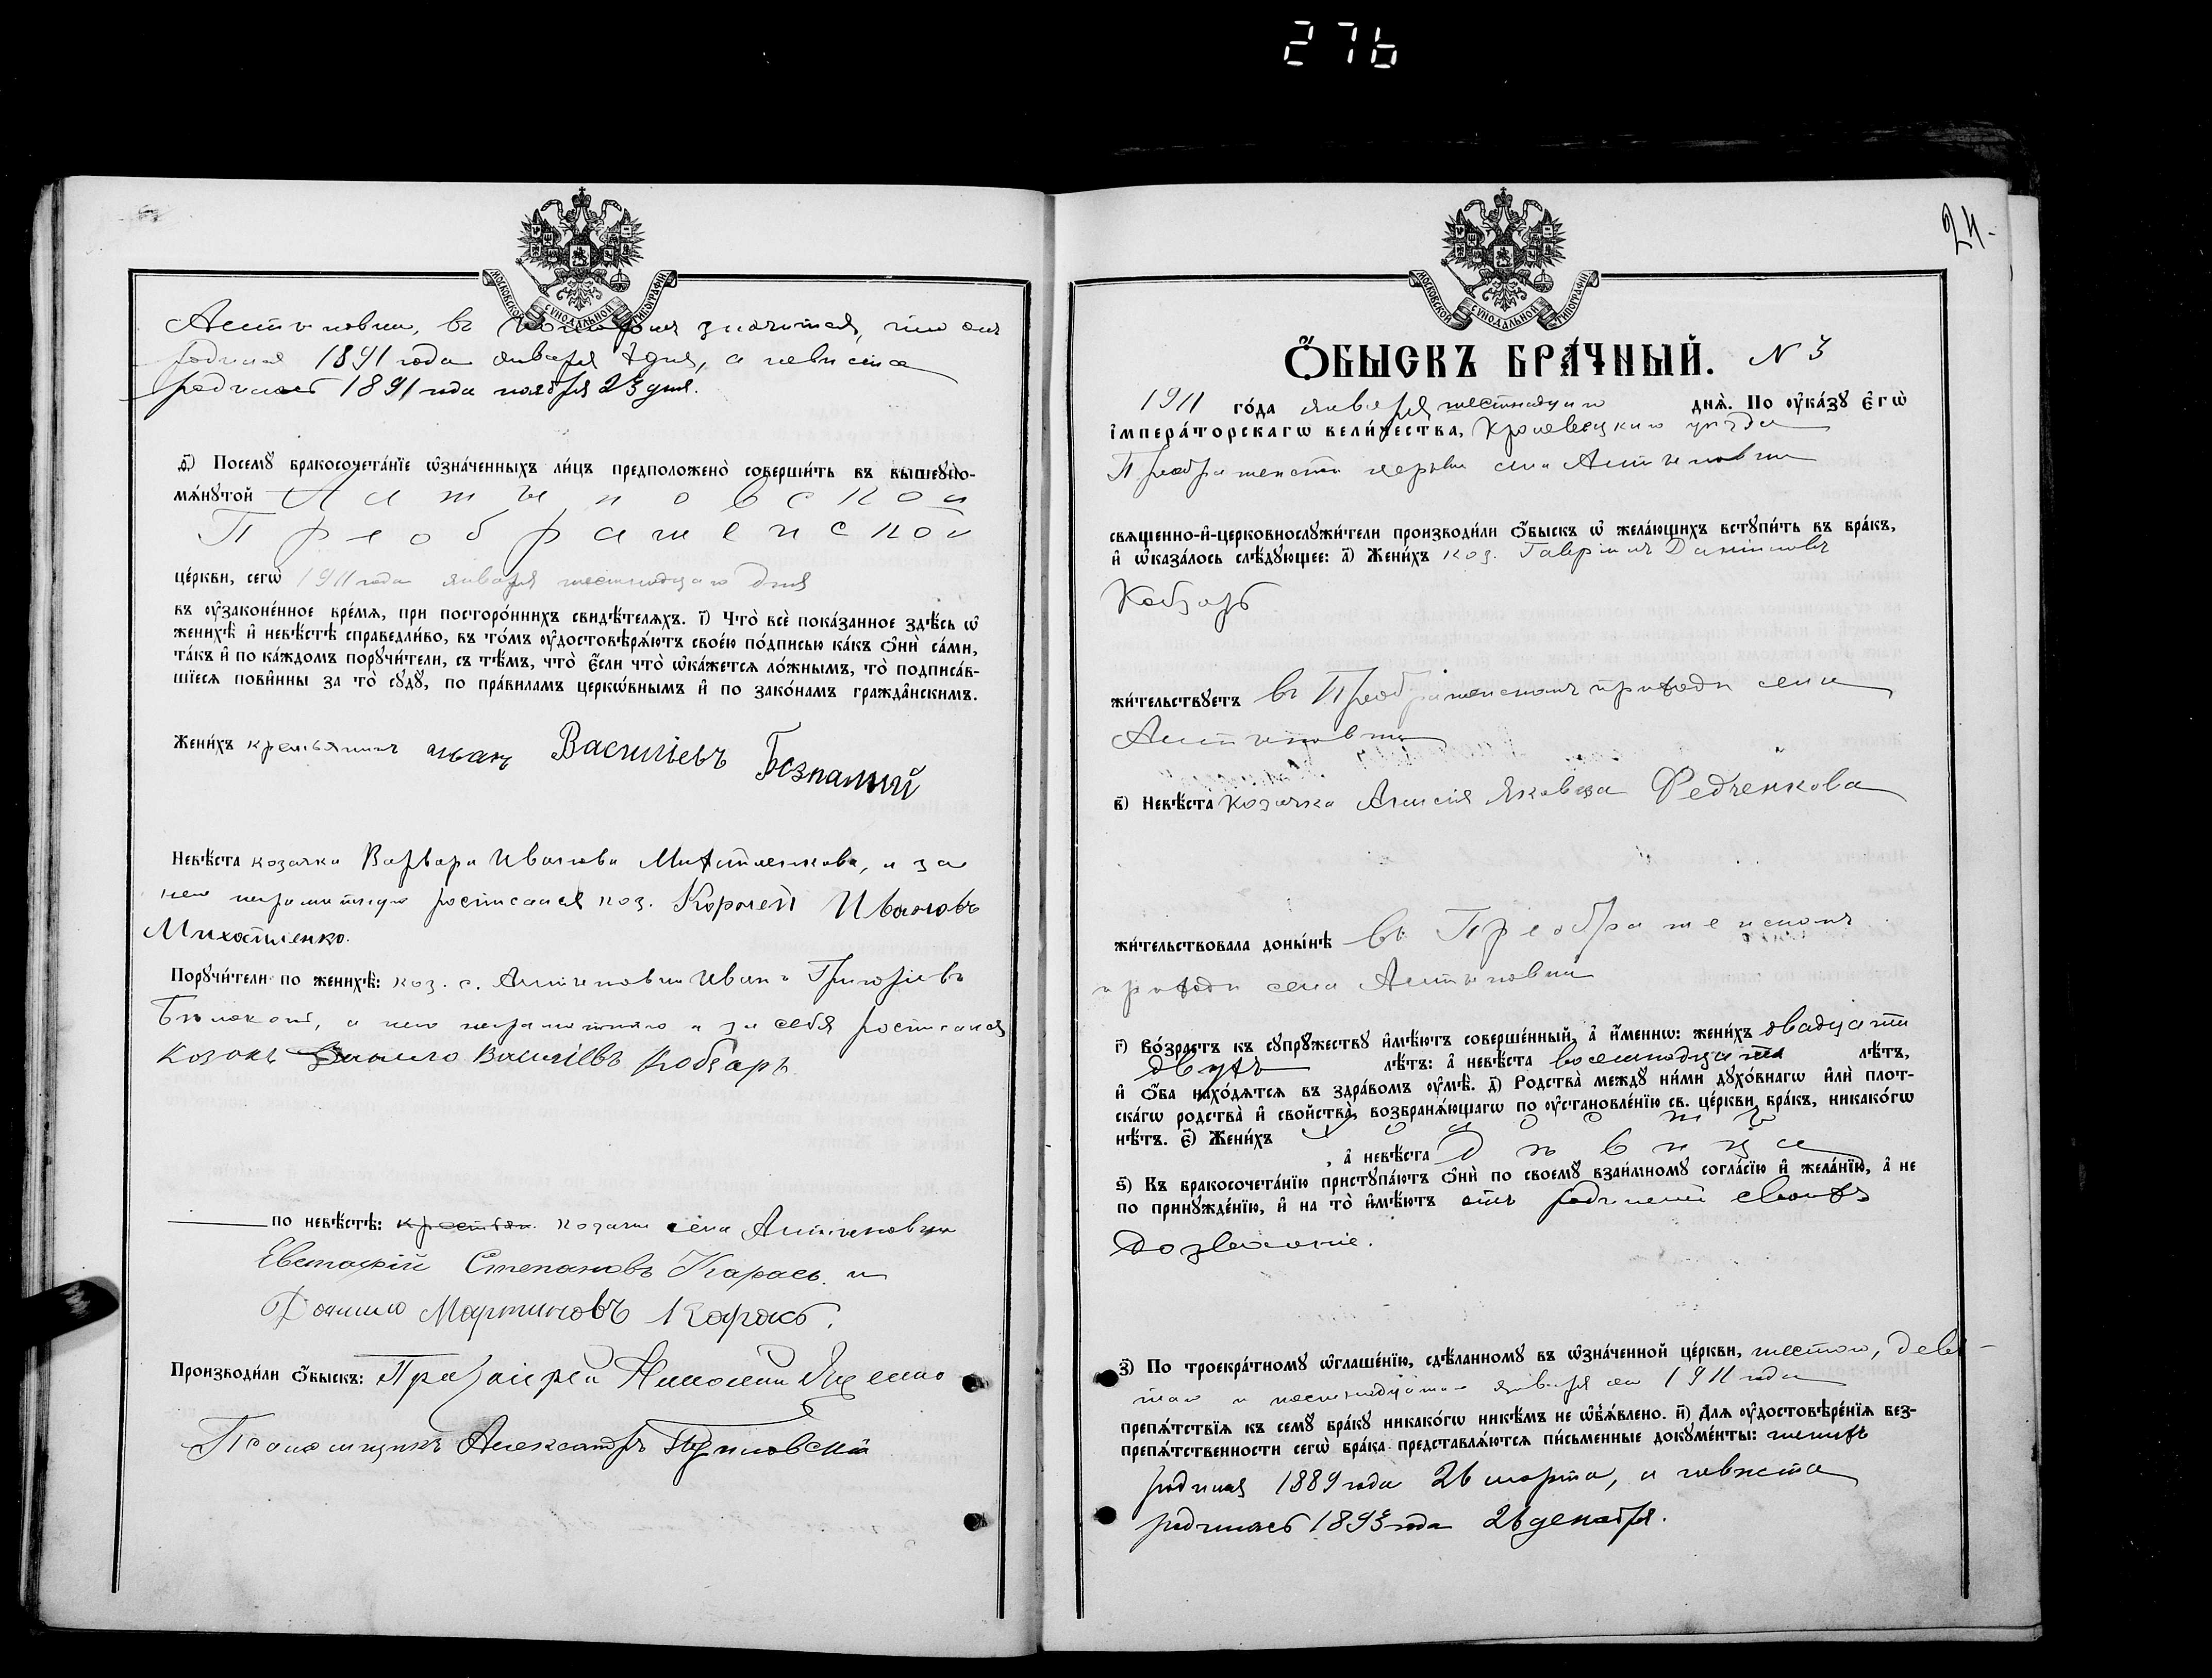 276
МОСКОВСКОЙ СУНОДАЛЬНОЙ ТИПОГРАФІИ
Алтыновки, въ которыхъ значится, что онъ
родился 1891 года января 7 дня, а невѣста
родилась 1891 года ноября 23 дня.
д҃) Посемꙋ̀ бракосочета́нїе ѡ҆зна́ченныхъ ли́цъ предположено̀ соверши́ть въ вышеꙋпо-
мя́нꙋтой Алтыновской
Преображенской
це́ркви, сегѡ̀ 1911 года января шестнадцаго дня
въ ᲂу҆законе́нное вре́мя, при посторо́ннихъ свидѣ́теляхъ. і҃) Что̀ всѐ пока́занное здѣ́сь ѡ҆
женихѣ̀ и҆ невѣ́стѣ справедли́во, въ то́мъ ᲂу҆достовѣря́ютъ свое́ю по́дписью ка́къ ѻ҆нѝ са́ми,
та́къ и҆ по ка́ждомъ порꙋчи́тели, съ тѣ́мъ, что̀ є҆́сли что̀ ѡ҆ка́жется ло́жнымъ, то̀ подписа́в-
шїеся пови́нны за то̀ сꙋдꙋ̀, по пра́виламъ церко́внымъ и҆ по зако́намъ гражда́нскимъ.
Жени́хъ крестьянинъ Иванъ Васильевъ Безпалый
Невѣ́ста козачка Варвара Иванова Михайленкова, а за
нею неграмотную росписался коз. Корней Ивановъ
Михайленко.
Порꙋчи́тели по женихѣ̀: коз. с. Алтыновки Иванъ Григорьевъ
неграмотнаго и за себя росписался
козакъ Васильевъ Кобзарь.
по невѣ́стѣ: крестьян. козаки села Алтыновки
Евстафій Степановъ Карась и
Мартиновъ Карась.
Производи́ли ѻ҆́быскъ: Протоіерей
Псаломщикъ Александръ
24.
МОСКОВСКОЙ СУНОДАЛЬНОЙ ТИПОГРАФІИ
Ѻ҆́БЫСКЪ БРА́ЧНЫЙ. N 3
1911 го́да января шестнадцаго днѧ̀. По ᲂу҆ка́зꙋ є҆гѡ̀
і҆мпера́торскагѡ вели́чества, Кролевецкаго уѣзда
Преображенской церкви села Алтыновки
свяще́нно-и҆-церковнослꙋжи́тели производи́ли ѻ҆́быскъ ѡ҆ жела́ющихъ встꙋпи́ть въ бра́къ,
и҆ ѡ҆каза́лось слѣ́дꙋющее: а҃) Жени́хъ коз. Гавріилъ Даніиловъ
Кобзарь
жи́тельствꙋетъ въ Преображенскомъ приходѣ села
Алтыновки
в҃) Невѣ́ста козачка Анисія Яковева Федченкова
жи́тельствовала доны́нѣ въ Преображенскомъ
приходѣ села Алтыновки
г҃) Во́зрастъ къ сꙋпрꙋ́жествꙋ и҆мѣ́ютъ соверше́нный, а҆ и҆́меннѡ: жени́хъ двадцати
двухъ лѣ́тъ: а҆ невѣ́ста восемнадцати лѣ́тъ,
и҆ ѻ҆́ба нахо́дятся въ здра́вомъ ᲂу҆мѣ̀. д҃) Родства̀ междꙋ ни́ми дꙋхо́внагѡ и҆лѝ плот-
ска́гѡ родства̀ и҆ сво́йства̀, возбраня́ющагѡ по ᲂу҆становле́нїю св. це́ркви бра́къ, никако́гѡ
нѣ́тъ. є҃) Жени́хъ холостъ
, а҆ невѣ́ста дѣвица
ѕ҃) Къ бракосочета́нїю пристꙋпа́ютъ ѻ҆нѝ по своемꙋ̀ взаи́мномꙋ согла́сїю и҆ жела́нїю, а҆ не
по принꙋжде́нїю, и҆ на то̀ и҆мѣ́ютъ отъ родителей своихъ
дозволеніе.
з҃) По троекра́тномꙋ ѡ҆глаше́нїю, сдѣ́ланномꙋ въ ѡ҆зна́ченной це́ркви, шестого, девя-
таго и шестнадцатаго января сего 1911 года
препя́тствїя къ семꙋ̀ бра́кꙋ никако́гѡ никѣ́мъ не ѡ҆бъя́влено. и҃) Для ᲂу҆достовѣре́нїя без-
препя́тственности сегѡ̀ бра́ка представля́ются пи́сьменные докꙋме́нты: женихъ
родился 1889 года 26 марта, а невѣста
родилась 1893 года 26 декабря.